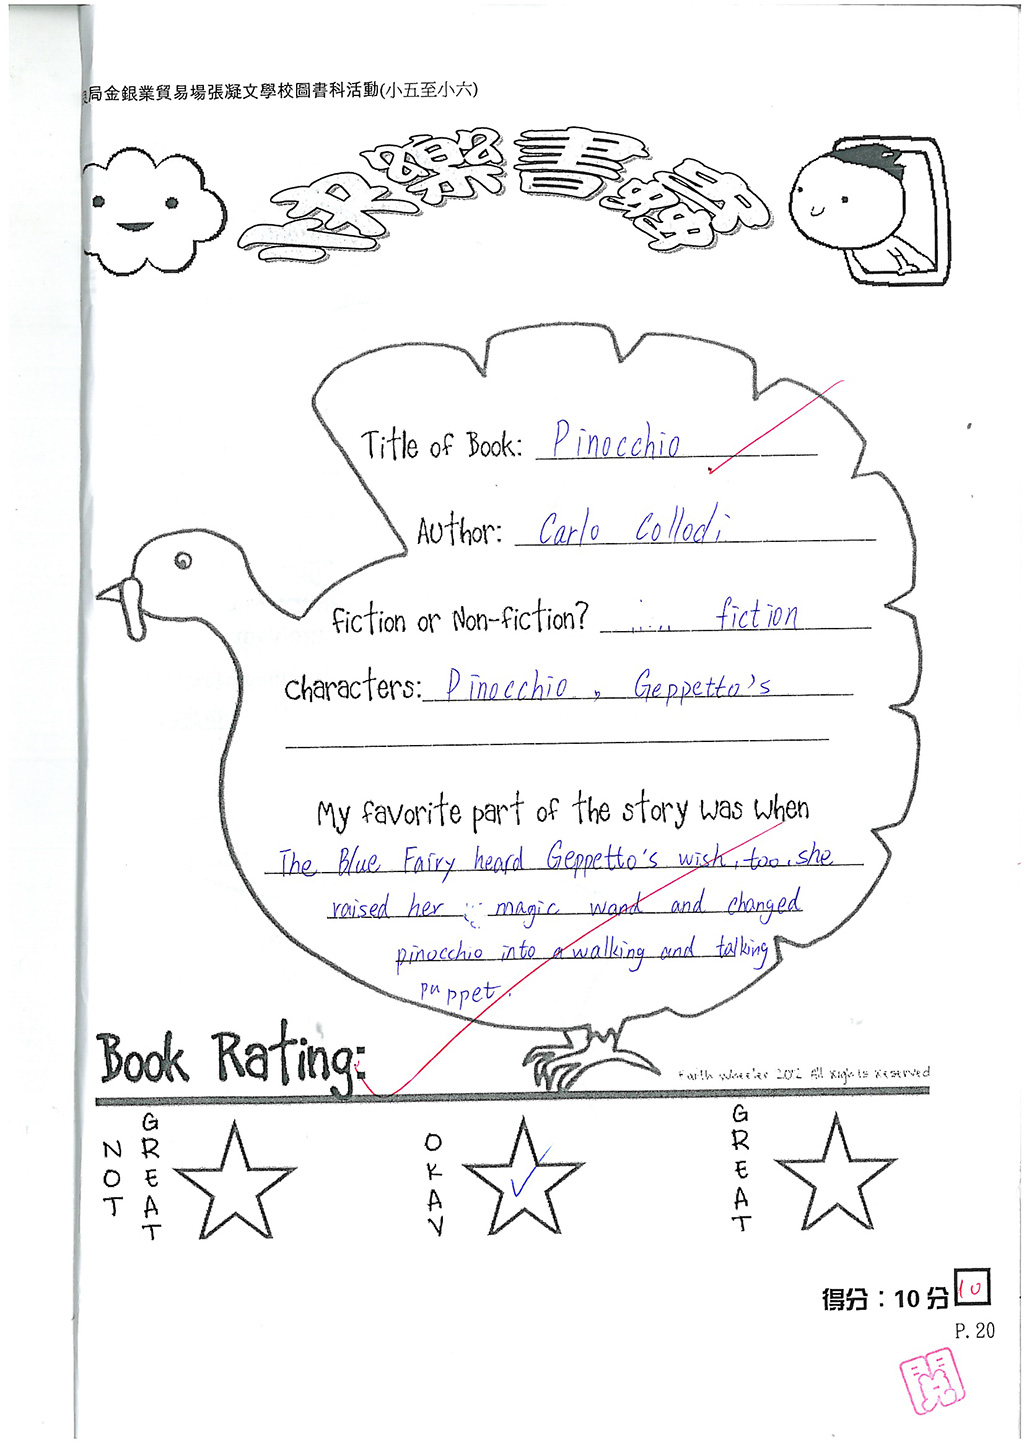 局金銀業貿易場張凝文學校圖書科活動(小五至小六)
Title of Book: Pinocchio
Author: Carlo Collodi
Fiction or Non-fiction? fiction
Characters: Pinocchio , Geppetto's
My favorite part of the story was when
The Blue Fairy heard Geppetto's wish, too. she
raised her magic wand and changed
pinocchio into a walking and talking
puppet.
Book Rating:
Faith Wheeler 2012 All Rights Reserved
NOT GREAT
OKAY
GREAT
得分：10 分 10
P. 20
閱